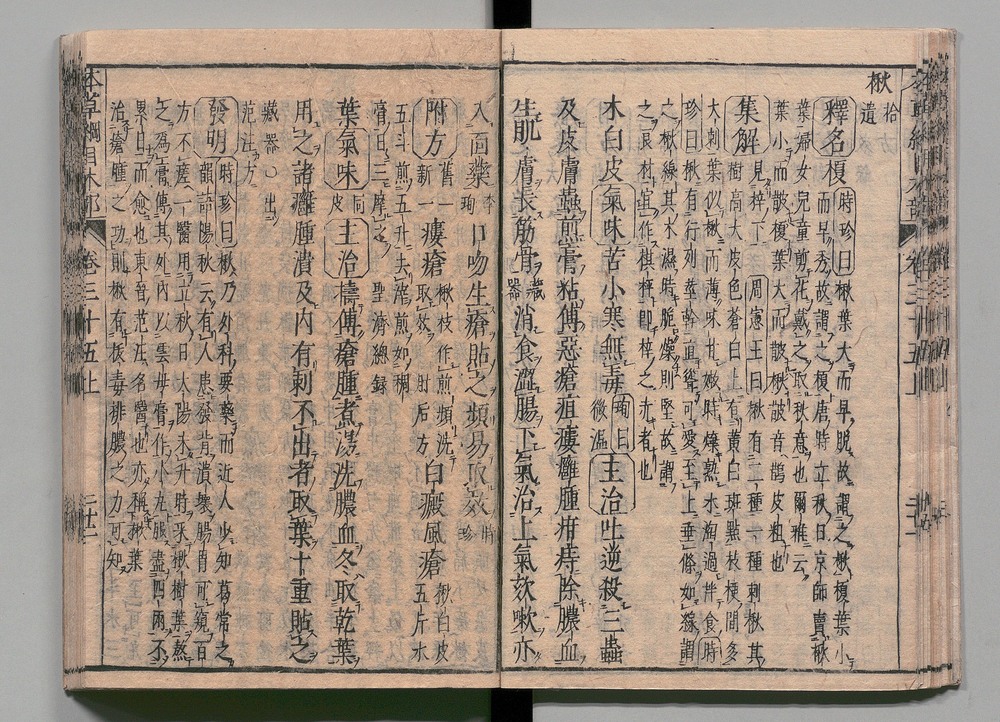 楸 拾遺
釋名 榎 時珍曰楸葉大而早脫故謂之楸榎葉小
而早秀故謂之榎唐時立秋日京師賣楸
葉婦女兒童剪花戴之取秋意也爾雅云
葉小而皵榎葉大而皵楸皵音鵲皮粗也
集解 周憲王曰楸有二種一種刺楸其
樹高大皮色蒼白上有黃白斑點枝梗間多
大刺葉似楸而薄味甘嫩時煠熟水淘過拌食時
珍曰楸有行列莖幹直聳可愛至上垂條如線謂
之楸線其木濕時脆燥則堅故謂
之良材宜作棋枰即梓之赤者也
木白皮 氣味 苦小寒無毒 珣曰微溫 主治 吐逆殺三蟲
及皮膚蟲煎膏粘傅惡瘡疽瘻癰腫疳痔除膿血
生肌膚長筋骨 藏器 消食澀腸下氣治上氣欬嗽亦
入面藥 李珣 口吻生瘡貼之頻易取效 時珍
附方 舊一新一 瘻瘡 楸枝作煎頻洗取效 肘后方 白癜風瘡 楸白皮五斤水
五斗煎五升去滓煎如稠
膏日三摩之 聖濟總錄
葉 氣味 同皮 主治 擣傅瘡腫煮湯洗膿血冬取乾葉
用之諸癰腫潰及內有刺不出者取葉十重貼之
藏器○出
范汪方
發明 時珍曰楸乃外科要藥而近人少知葛常之
韻語陽秋云有人患發背潰壞腸胃可窺百
方不瘥一醫用立秋日太陽未升時采楸樹葉熬
之為膏傅其外內以雲母膏作小丸服盡四兩不
累日而愈也東晉范汪名醫也亦稱楸葉
治瘡腫之功則楸有拔毒排膿之力可知
本草綱目木部 卷三十五上